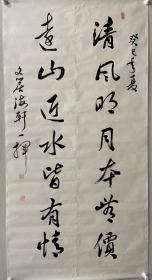 癸巳年夏
清風明月本無價
遠山近水皆有情
文居海軒一揮